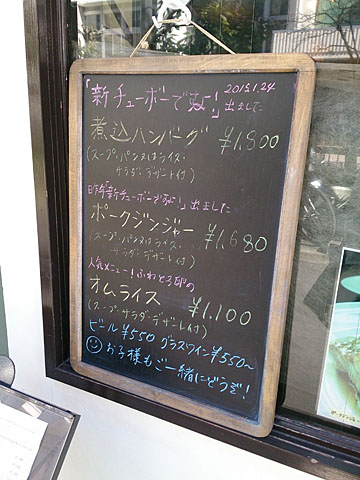 「新チューボーですよ!」 2015.1.24
出ました
煮込ハンバーグ ¥1,800
(スープ・パンorライス・
サラダ・デザート付)
昨年「新チューボーですよ!」出ました
ポークジンジャー ¥1,680
(スープ・パンorライス・
サラダ・デザート付)
人気メニュー!ふわとろ卵の
オムライス ¥1,100
(スープ・サラダ・デザート付)
ビール ¥550 グラスワイン ¥550〜
お子様もご一緒にどうぞ!